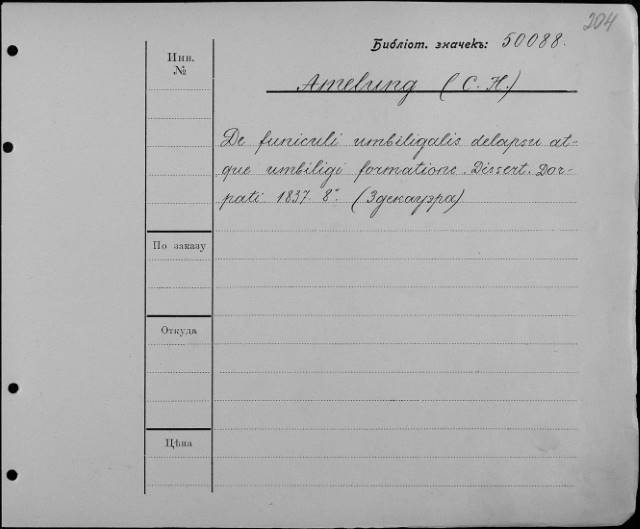 204
Библіот. значекъ: 50088.
Инв.
№
Amelung (C. H.)
De funiculi umbiligalis delapsu at-
que umbiligi formatione. Dissert. Dor-
pati 1837. 8°. (Здекауэра)
По заказу
Откуда
Цѣна